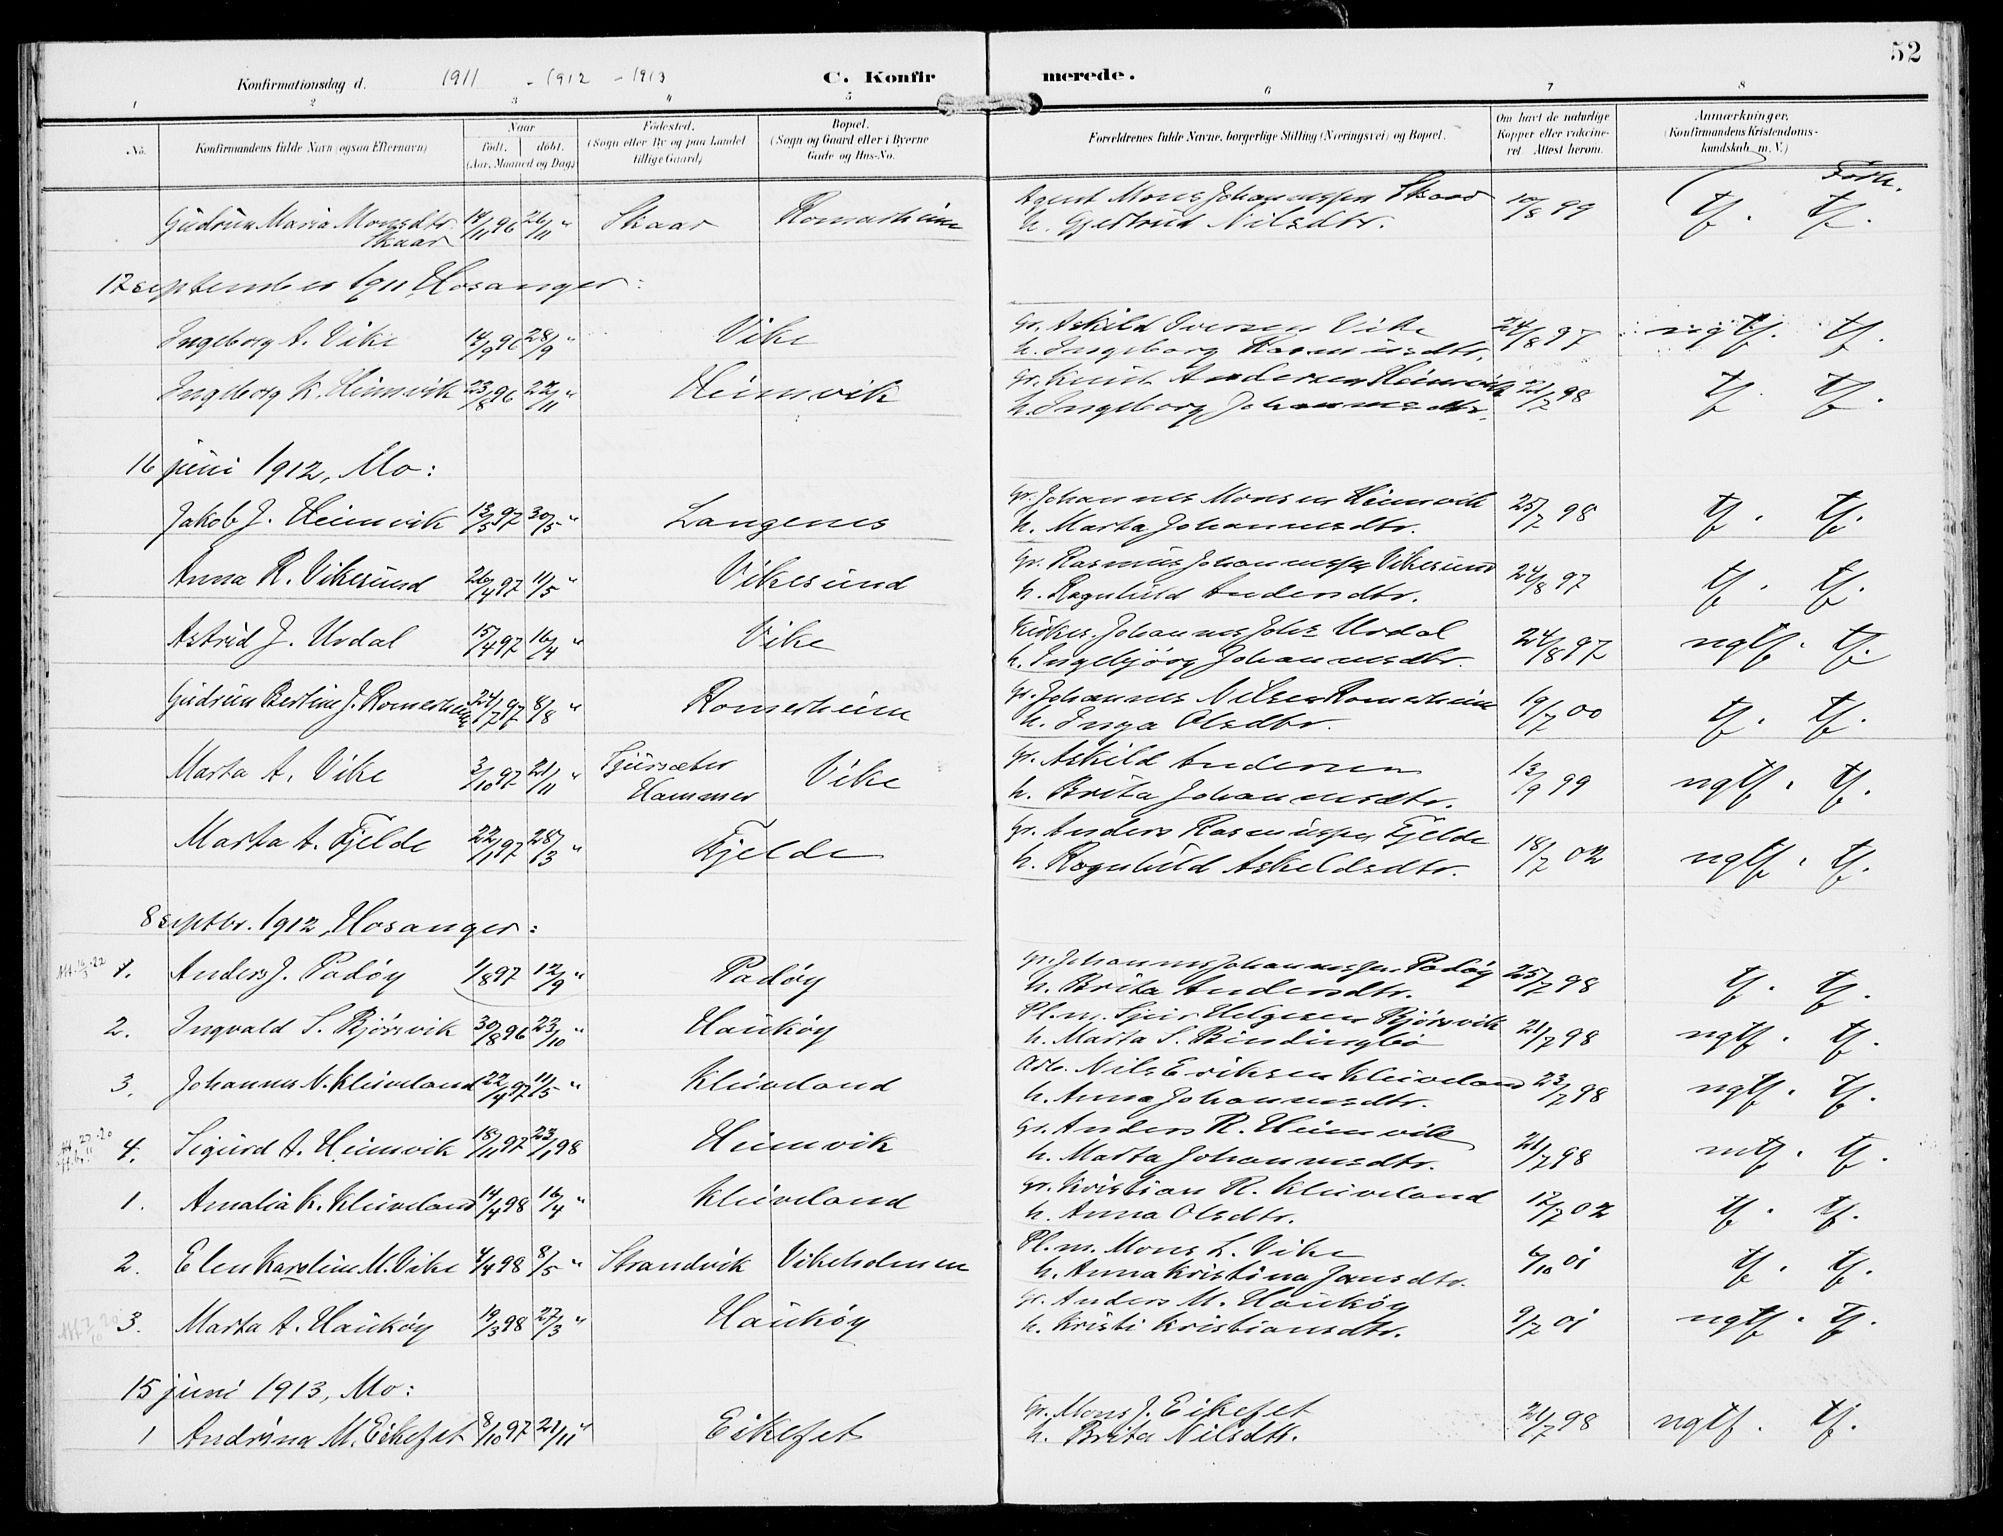 52
Konfirmationsdag d. 1911 - 1912 - 1913 C. Konfirmerede.
1 2 3 4 5 6 7 8
No. Konfirmandens fulde Navn (ogsaa Efternavn) Naar født. døbt. (Aar, Maaned og Dag) Fødested. (Sogn eller By og paa Landet tillige Gaard) Bopæl. (Sogn og Gaard eller i Byerne Gade og Hus-No. Forældrenes fulde Navne, borgerlige Stilling (Næringsvei) og Bopæl. Om havt de naturlige Kopper eller vakcineret. Attest herom. Anmærkninger. (Konfirmandens Kristendomskundskab m. V.)
Gudrun Maria Monsdtr. Skaar 14/11 96 26/11 " Skaar Romarheim Agent Mons Johannessen Skaar 10/8 99 tf. tf.
h. Gjertrud Nilsdtr.
17 september 1911 Hosanger:
Ingeborg A. Vike 14/9 96 28/9 " Vike Gr. Askild Iversen Vike 24/8 97 ngtf. tf.
h. Ingeborg Rasmusdtr.
Ingeborg K. Heimvik 23/8 96 22/11 " Heimvik Gr. Knut Andersen Heimvik 21/7 98 tf. tf.
h. Ingeborg Johannesdtr.
16 juni 1912, Mo:
Jakob J. Heimvik 13/5 97 30/5 " Langenes Gr. Johannes Monsen Heimvik 25/7 98 tf. tf.
h. Marta Johannesdtr.
Anna R. Vikesund 26/4 97 11/5 " Vikesund Gr. Rasmus Johannessen Vikesund 24/8 97 tf. tf.
h. Ragnhild Andersdtr.
Astrid J. Urdal 15/4 97 16/4 " Vike Kirkes. Johannes Johs Urdal 24/8 97 ngtf. tf.
h. Ingebjørg Johannesdtr.
Gudrun Bertine J. Romerheim 24/7 97 8/8 " Romerheim Gr. Johannes Nilsen Romerheim 19/7 00 tf. tf.
h. Inga Olsdtr.
Marta A. Vike 3/10 97 21/11 " Hammer Vike Gr. Askild Andersen 13/9 99 ngtf. tf.
h. Brita Johannesdtr.
Marta A. Fjelde 22/1 97 28/3 " Fjelde Gr. Anders Rasmussen Fjelde 18/7 02 ngtf. tf.
h. Ragnhild Askeldsdtr.
8 septbr. 1912, Hosanger:
1. Anders J. Padøy 1/8 97 12/9 " Padøy Gr. Johannes Johannessen Padøy 25/7 98 tf. tf.
h. Brita Andersdtr.
2. Ingvald S. Bjørsvik 30/8 96 23/10 " Haukøy Pl.m. Sjur Helgesen Bjørsvik 21/7 98 ngtf. tf.
h. Marta S. Bindingbø
3. Johannes N. Kleiveland 22/4 97 11/5 " Kleiveland Arb. Nils Eriksen Kleiveland 23/7 98 ngtf. tf.
h. Anna Johannesdtr.
4. Sigurd A. Heimvik 18/11 97 23/1 98 Heimvik Gr. Anders R. Heimvik 21/7 98 mtf. tf.
h. Marta Johannesdtr.
1. Amalia K. Kleiveland 14/4 98 16/4 " Kleiveland Gr. Kristian R. Kleiveland 17/7 02 tf. tf.
h. Anna Olsdtr.
2. Elen Karoline M. Vike 4/4 98 8/5 " Strandvik Vikeholmen Pl.m. Mons L. Vike 6/10 01 tf. tf.
h. Anna Kristina Jansdtr.
3. Marta A. Haukøy 19/3 98 27/3 " Haukøy Gr. Anders M. Haukøy 9/7 01 ngtf. tf.
h. Kristi Kristiansdtr.
15 juni 1913, Mo:
1 Andrina M. Eikefet 8/10 97 21/11 " Eikefet Gr. Mons J. Eikefet 21/7 98 ngtf. tf.
h. Brita Nilsdtr.